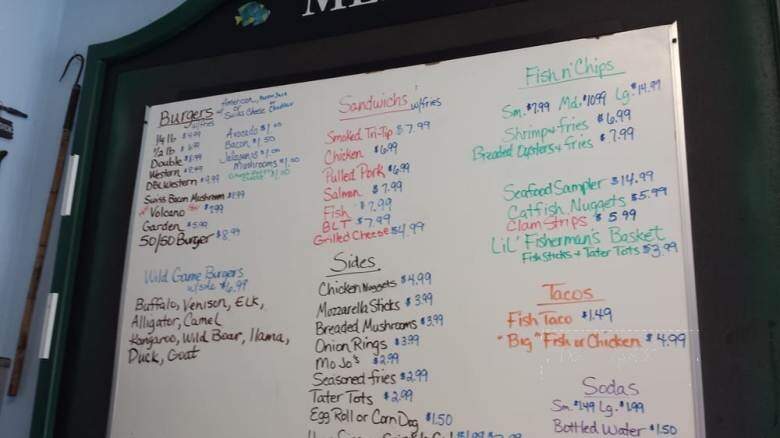 Burgers
w/fries
American
or
Swiss Cheese or Cheddar
1/4 lb $4.99
1/2 lb
Double
Western
Dbl Western
Swiss Bacon Mushroom
Volcano
Garden
50/50 Burger $8.99
Avocado $1.00
Bacon $1.50
Jalapeno's $1.00
Mushrooms $1.00
Wild Game Burgers
w/side $6.99
Buffalo, Venison, Elk,
Alligator, Camel
Kangaroo, Wild Boar, llama,
Duck, Goat
Sandwichs
w/fries
Smoked Tri-Tip $7.99
Chicken $6.99
Pulled Pork $6.99
Salmon $7.99
Fish $7.99
BLT $7.99
Grilled Cheese $4.99
Sides
Chicken Nuggets $4.99
Mozzarella Sticks $3.99
Breaded Mushrooms $3.99
Onion Rings $3.99
Mo Jo's $2.99
Seasoned fries $2.99
Tater Tots $2.99
Egg Roll or Corn Dog $1.50
Fish n' Chips
Sm. $7.99 Md. $10.99 Lg. $14.99
Shrimp + fries $6.99
Breaded Oysters + fries $7.99
Seafood Sampler $14.99
Catfish Nuggets $5.99
Clam Strips $5.99
LiL' Fisherman's Basket
Fish Sticks + Tater Tots $3.99
Tacos
Fish Taco $1.49
"Big" Fish or Chicken $4.99
Sodas
Sm. $1.49 Lg. $1.99
Bottled Water $1.50